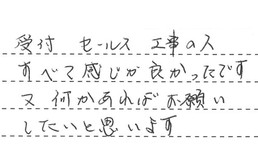 受付 セールス 工事の人
すべて感じが良かったです
又 何かあれば お願い
したいと思います